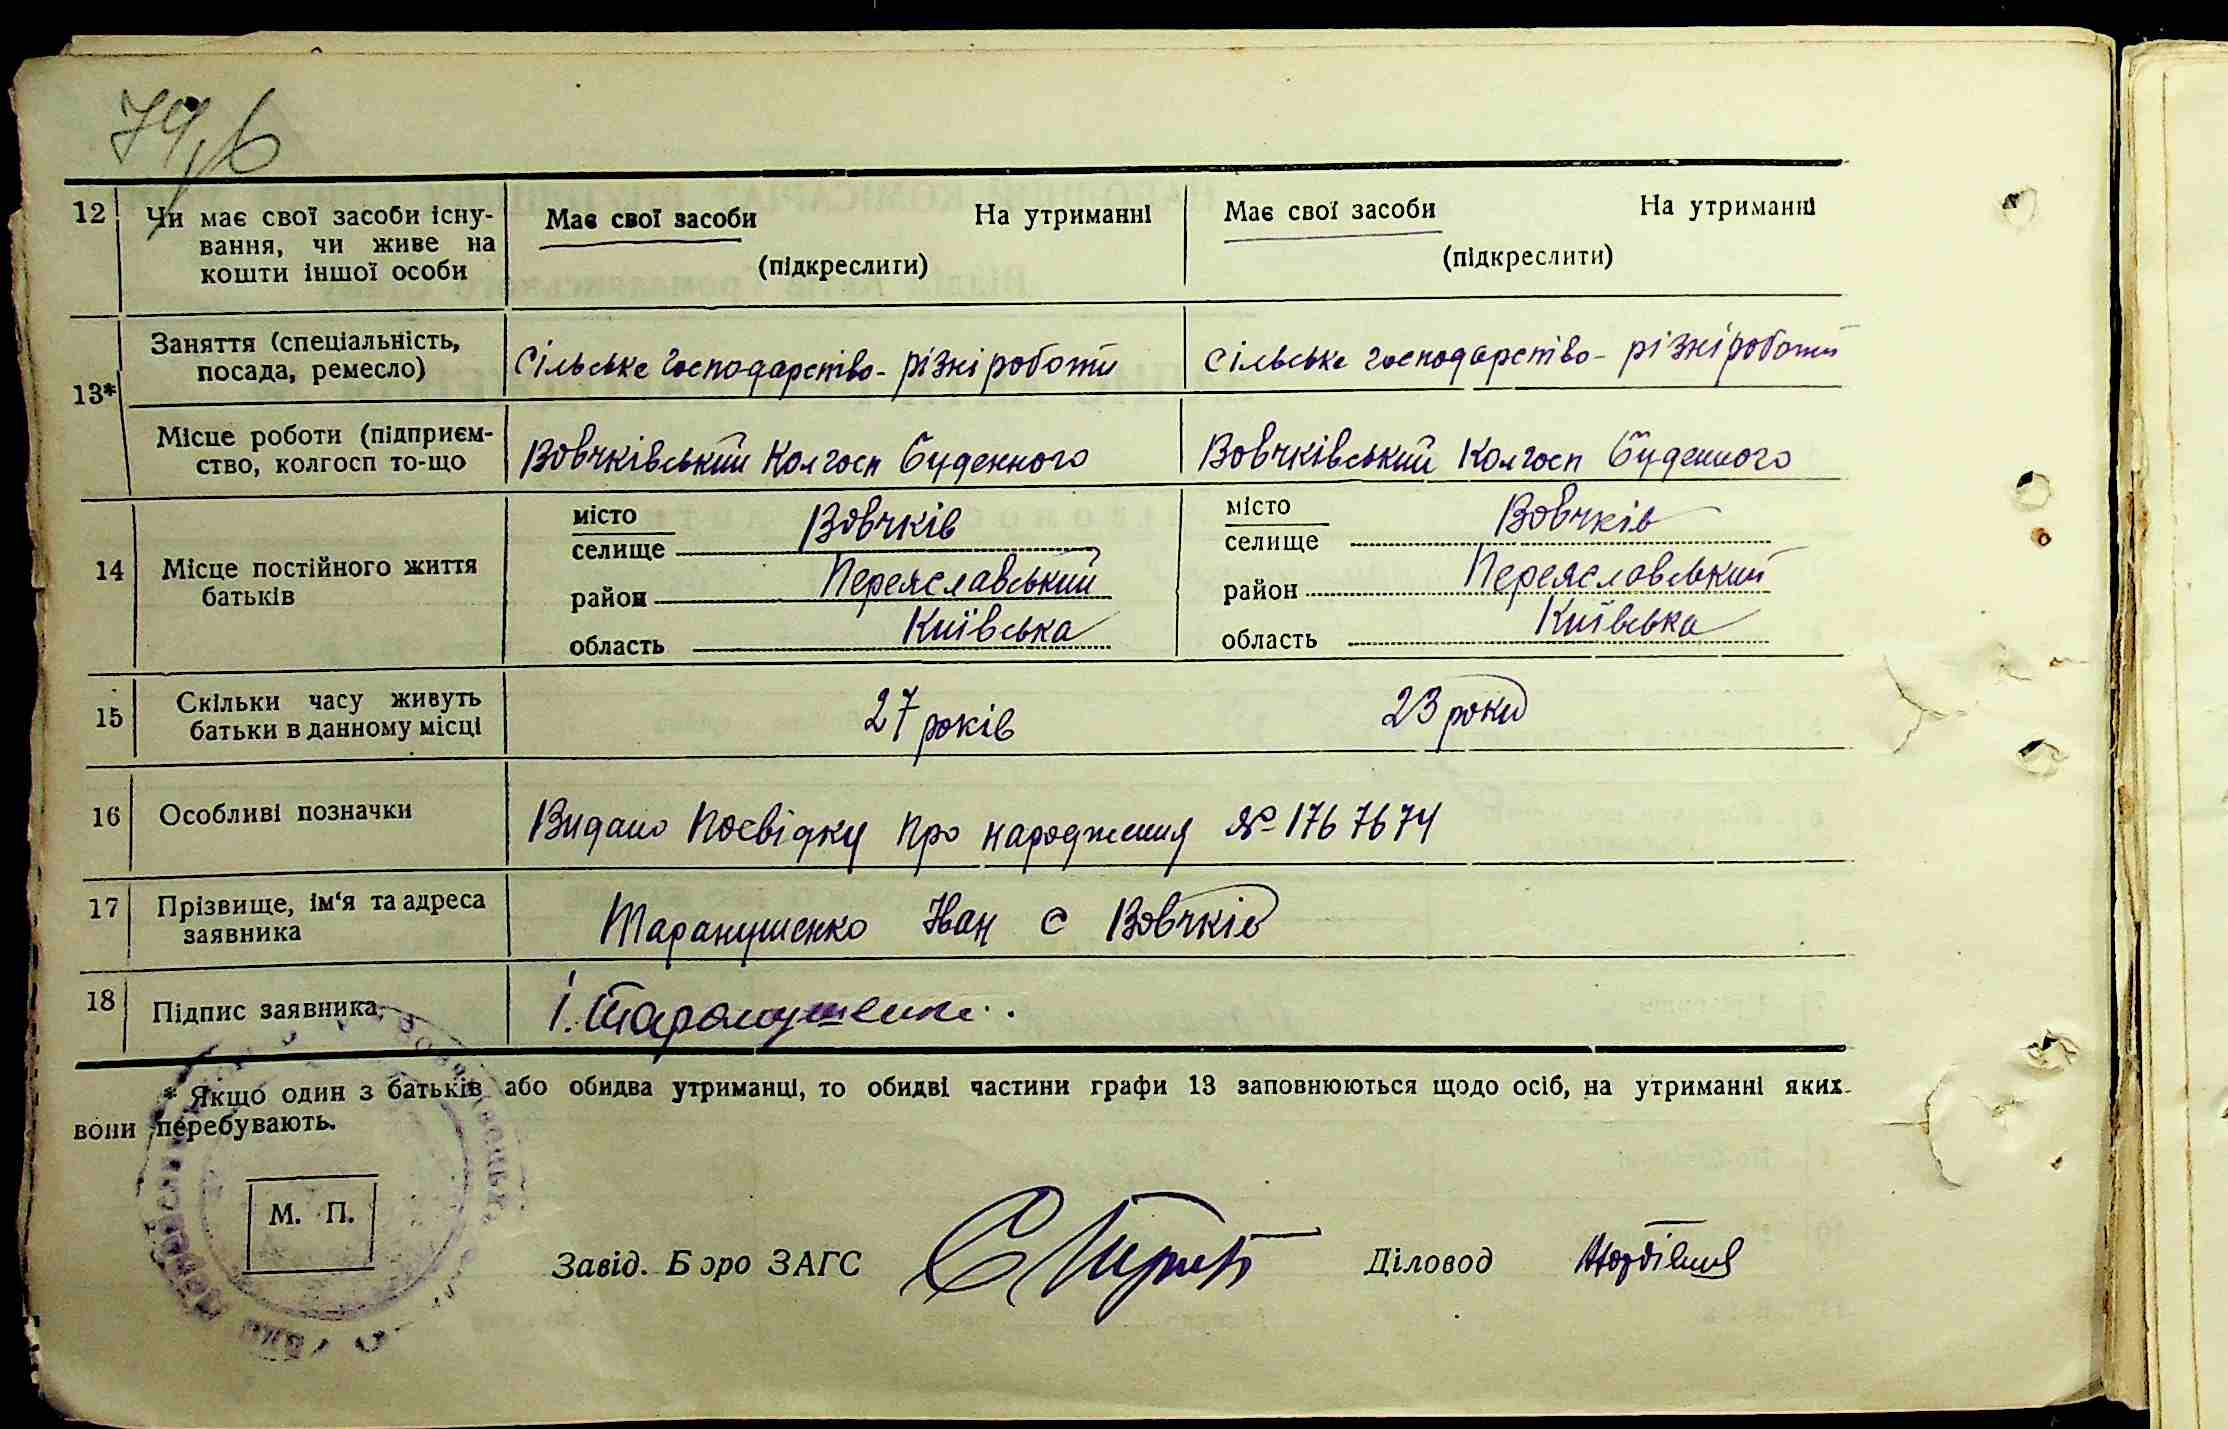 12 Чи має свої засоби існу-
вання, чи живе на
кошти іншої особи
Має свої засоби На утриманні
(підкреслити)
Має свої засоби На утриманні
(підкреслити)
13*
Заняття (спеціальність,
посада, ремесло)
Сільське господарство - різні роботи
Сільське господарство - різні роботи
Місце роботи (підприєм-
ство, колгосп то-що
Вовчківський Колгосп Буденного
Вовчківський Колгосп Буденного
14 Місце постійного життя
батьків
місто
селище Вовчків
район Переяславський
область Київська
місто
селище Вовчків
район Переяславський
область Київська
15 Скільки часу живуть
батьки в данному місці
27 років
23 роки
16 Особливі позначки
Видано Посвідку про народження № 1767674
17 Прізвище, ім'я та адреса
заявника
Таранушенко Іван с Вовчків
18 Підпис заявника
І. Таранушенко.
* Якщо один з батьків або обидва утриманці, то обидві частини графи 13 заповнюються щодо осіб, на утриманні яких
вони перебувають.
М. П.
Завід. Бюро ЗАГС
Діловод